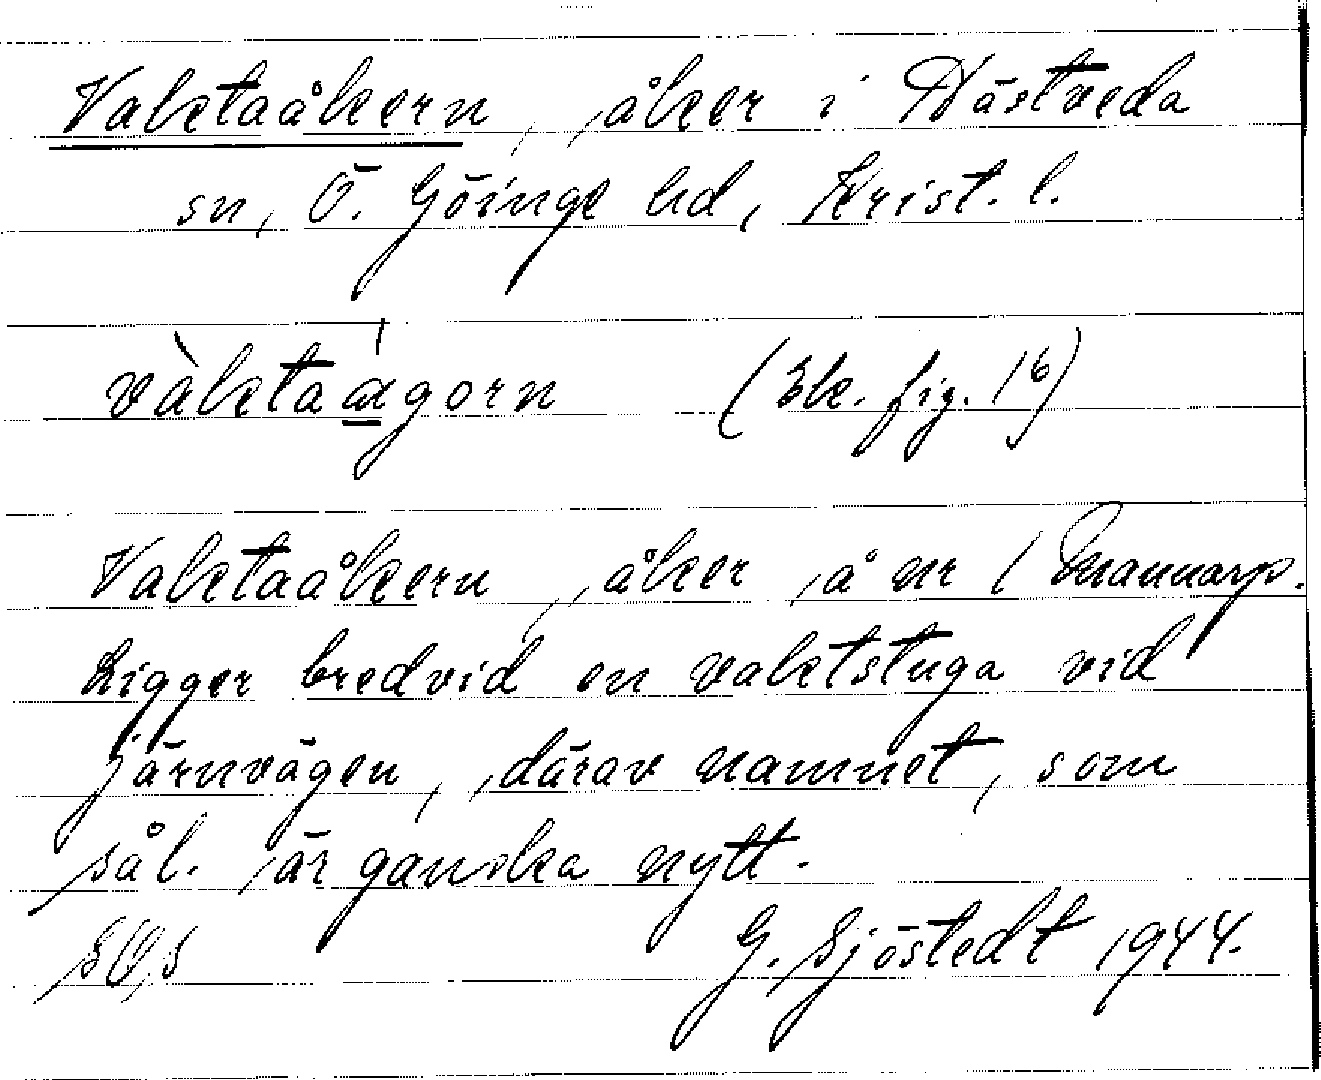 Vaktaåkern, åker i Hästveda
sn, Ö. Göinge hd, Krist. l.
vàktaágorn (Ek. fig. 16)
Vaktaåkern, åker å nr 1 Emannarp.
Ligger bredvid en vaktstuga vid
järnvägen, därav namnet, som
sål. är ganska nytt.
G. Sjöstedt 1944.